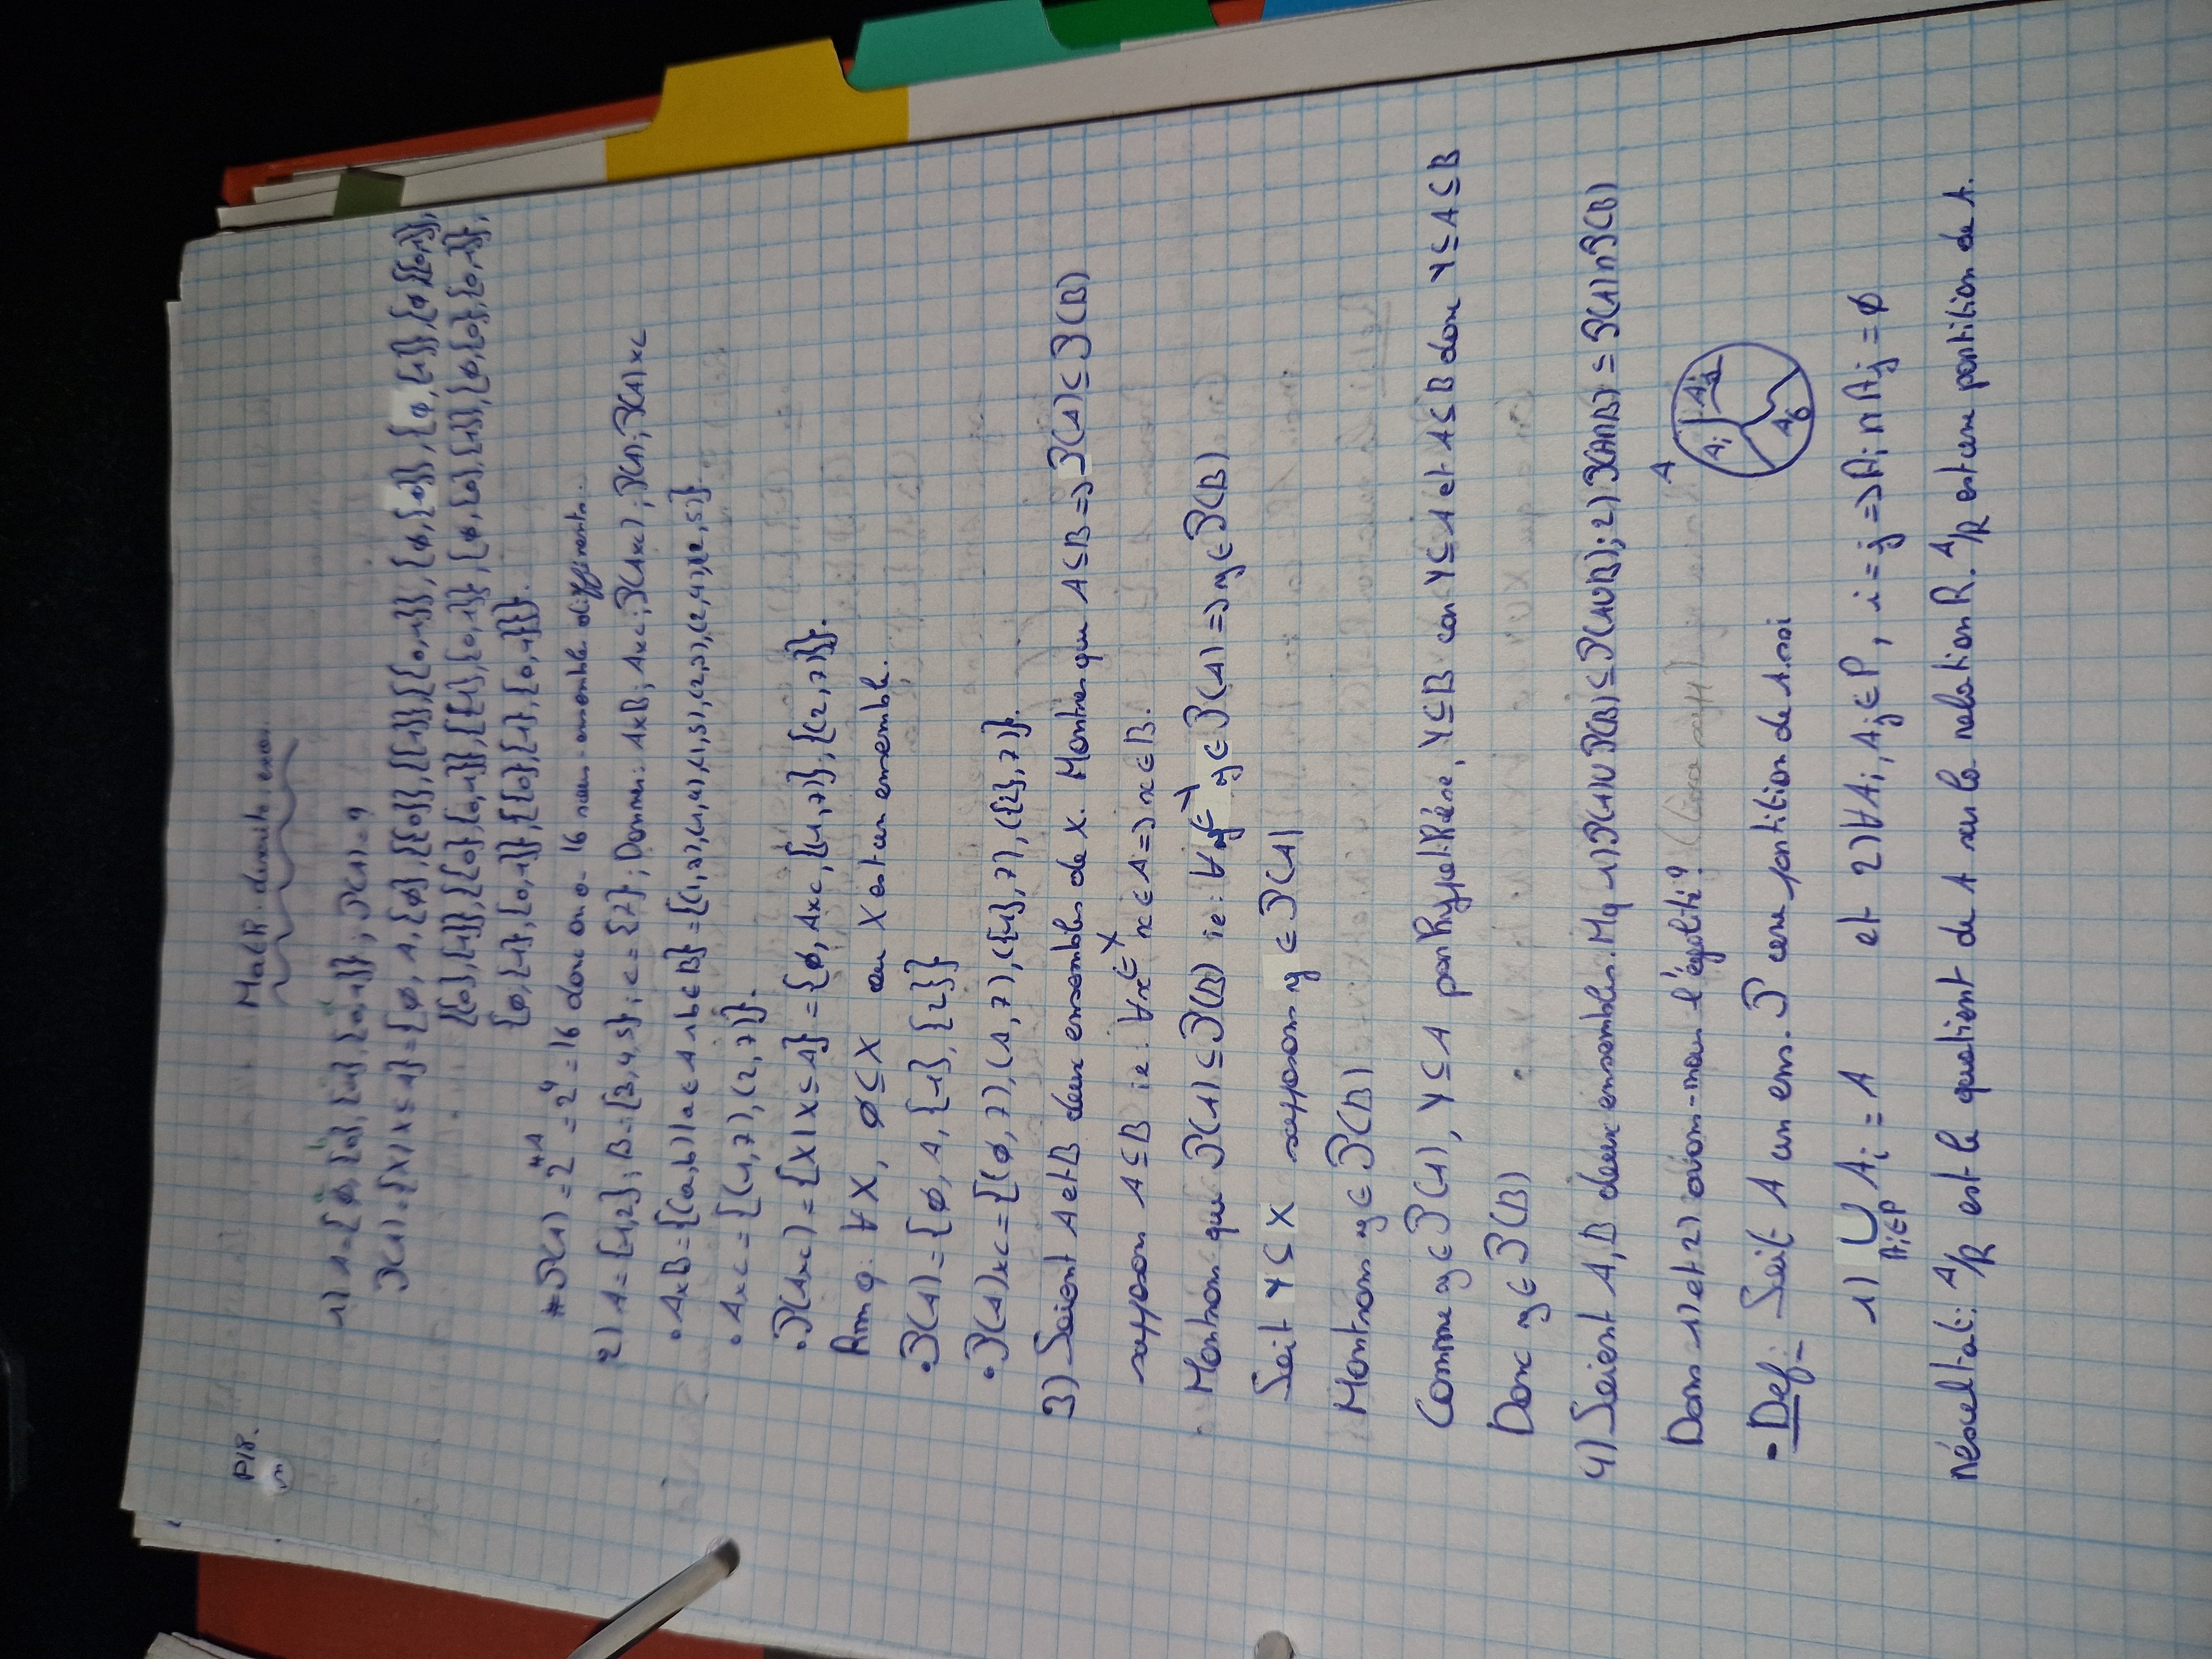 P18.
Math. discrète exos
1) A = {∅, {0}, {1}, {0,1}} ; P(A) = ?
P(A) = {X | X ⊆ A} = {∅, A, {∅}, {{0}}, {{1}}, {{0,1}}, {∅,{0}}, {∅,{1}}, {∅,{0,1}},
{{0},{1}}, {{0},{0,1}}, {{1},{0,1}}, {∅,{0},{1}}, {∅,{0},{0,1}},
{∅,{1},{0,1}}, {{0},{1},{0,1}}}.
#P(A) = 2^#A = 2^4 = 16 donc on a 16 sous-ensembles différents.
2) A = {1,2} ; B = {3,4,5} ; C = {7} ; Donner : A×B ; A×C ; P(A×C) ; P(A) ; P(A)×C
• A×B = {(a,b) | a ∈ A ∧ b ∈ B} = {(1,3),(1,4),(1,5),(2,3),(2,4),(2,5)}.
• A×C = {(1,7),(2,7)}.
• P(A×C) = {X | X ⊆ A} = {∅, A×C, {(1,7)}, {(2,7)}}.
Rmq. ∀X, ∅ ⊆ X ou X est un ensemble.
• P(A) = {∅, A, {1}, {2}}
• P(A)×C = {(∅,7), (A,7), ({1},7), ({2},7)}.
3) Soient A et B deux ensembles de X. Montrer que A ⊆ B => P(A) ⊆ P(B)
supposon A ⊆ B ie : ∀x ∈ X x ∈ A => x ∈ B.
Montrons que P(A) ⊆ P(B) ie : ∀y ∈ Y y ∈ P(A) => y ∈ P(B)
Soit Y ⊆ X supposons y ∈ P(A)
Montrons y ∈ P(B)
Comme y ∈ P(A), Y ⊆ A par hypothèse, Y ⊆ B car Y ⊆ A et A ⊆ B donc Y ⊆ A ⊆ B
Donc y ∈ P(B)
4) Soient A, B deux ensembles. Mq 1) P(A) ∪ P(B) ⊆ P(A∪B) ; 2) P(A∩B) ⊆ P(A) ∩ P(B)
Dans 1) et 2) avons-nous l'égalité ?
A
Ai
Aj
A6
- Def : Soit A un ens. P une partition de A. ssi
1) ∪ Ai = A et 2) ∀Ai, Aj ∈ P, i = j => Ai ∩ Aj = ∅
Ai∈P
résultat : A/R est le quotient de A sur la relation R. A/R est une partition de A.